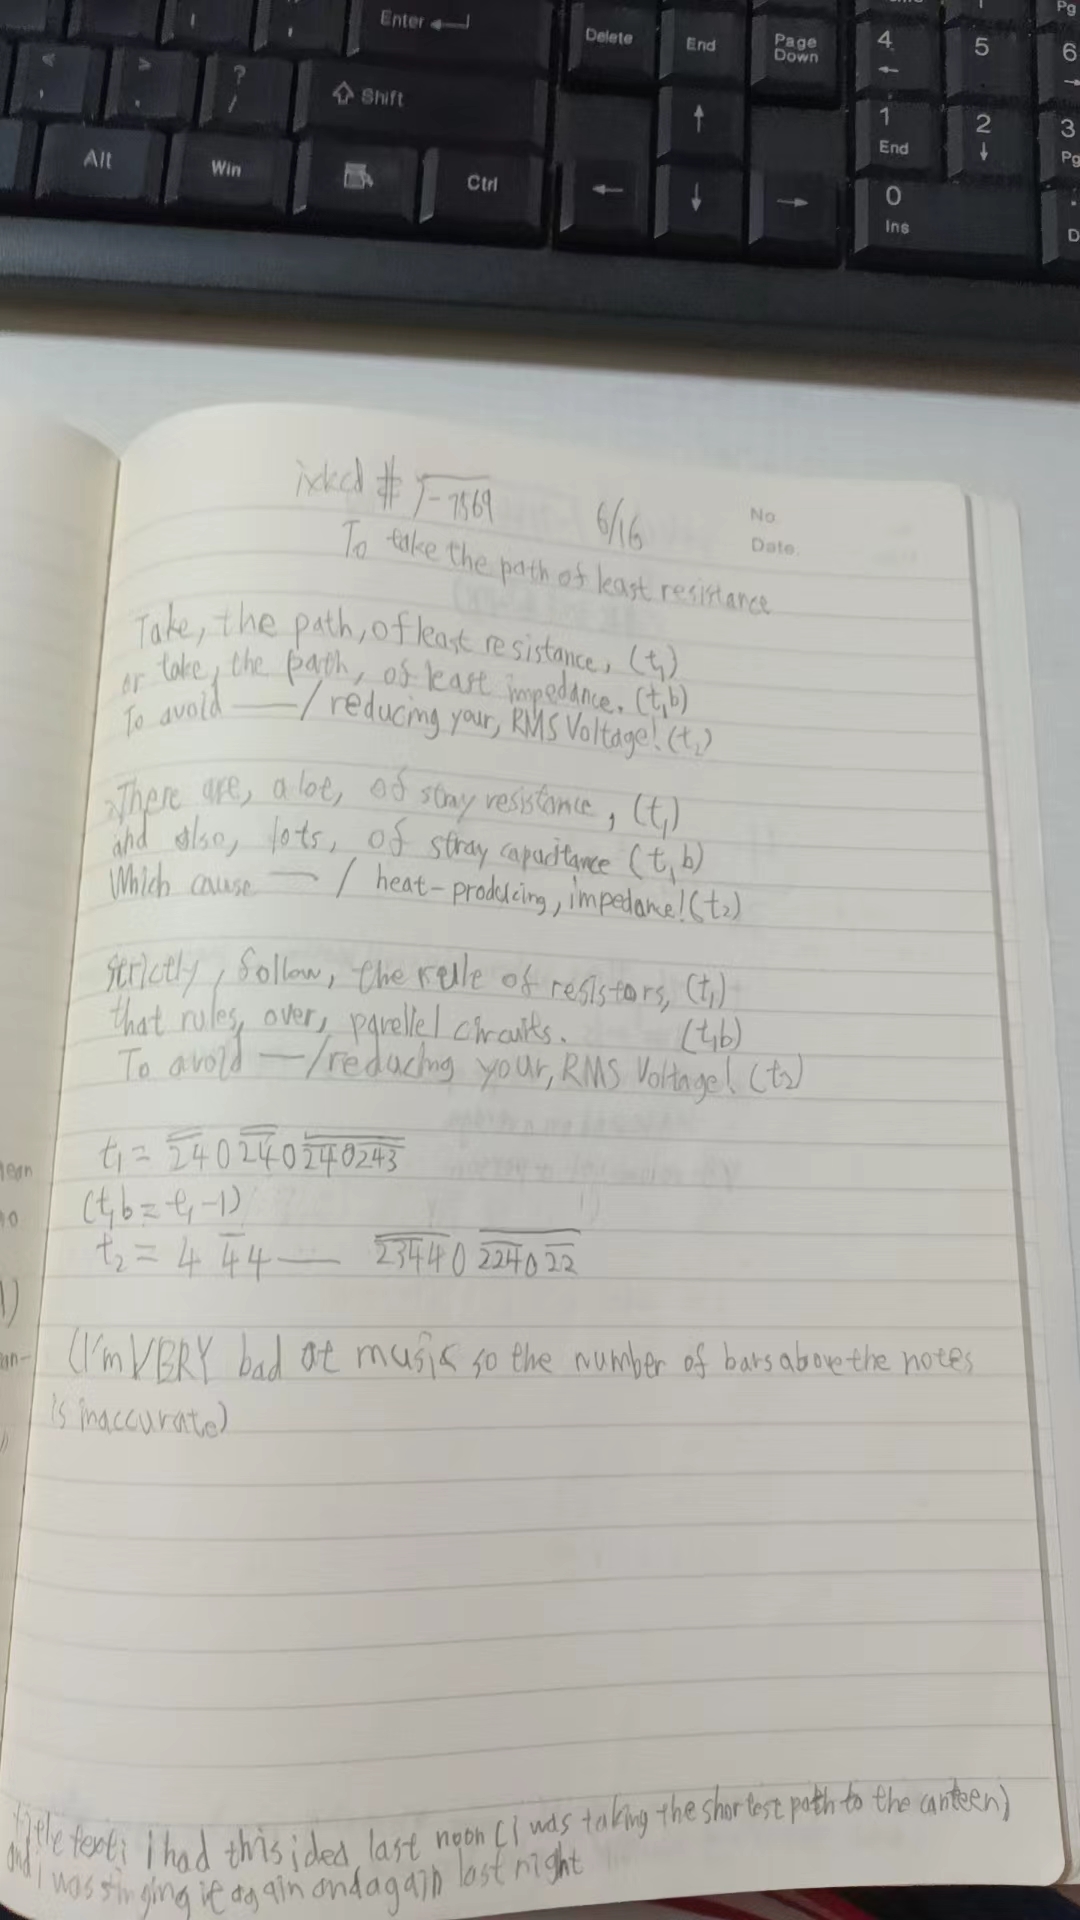 Enter
Delete
End
Page Down
4
5
6
Pg
< ,
> .
? /
Shift
1 End
2
3 Pg
Alt
Win
Ctrl
0 Ins
D
ixkcd # √-7569
6/16
No.
Date.
To take the path of least resistance
Take, the path, of least resistance, (t₁)
or take, the path, of least impedance. (t₁b)
To avoid —— / reducing your, RMS Voltage! (t₂)
There are, a lot, of stray resistance, (t₁)
and also, lots, of stray capacitance (t₁b)
Which cause —— / heat-producing, impedance! (t₂)
Strictly, follow, the rule of resistors, (t₁)
that rules, over, parellel circuits. (t₁b)
To avoid —/reducing your, RMS Voltage! (t₂)
t₁ = 240240240243
(t₁b = t₁-1)
t₂ = 4 44 —— 23440 224022
(I'm VERY bad at music so the number of bars above the notes
is inaccurate)
title text: i had this idea last noon (i was taking the shortest path to the canteen)
and i was singing it again and again last night